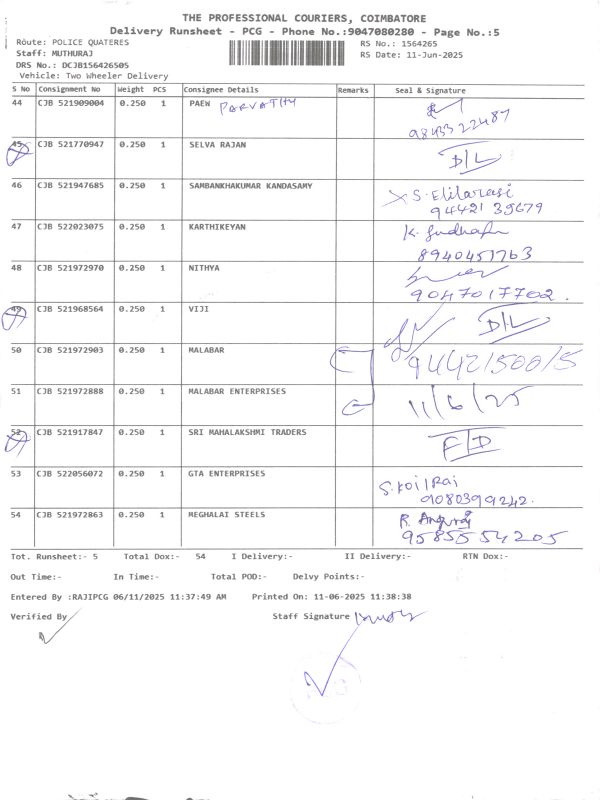 THE PROFESSIONAL COURIERS, COIMBATORE
Delivery Runsheet - PCG - Phone No.:9047080280 - Page No.:5
Route: POLICE QUATERES RS No.: 1564265
Staff: MUTHURAJ RS Date: 11-Jun-2025
DRS No.: DCJB156426505
Vehicle: Two Wheeler Delivery
S No Consignment No Weight PCS Consignee Details Remarks Seal & Signature
44 CJB 521909004 0.250 1 PAEW PARVATHY
9843322487
45 CJB 521770947 0.250 1 SELVA RAJAN D/L
46 CJB 521947685 0.250 1 SAMBANKHAKUMAR KANDASAMY S. Elilarasi
94421 35679
47 CJB 522023075 0.250 1 KARTHIKEYAN K.
8940451763
48 CJB 521972970 0.250 1 NITHYA
9047017702.
49 CJB 521968564 0.250 1 VIJI D/L
50 CJB 521972903 0.250 1 MALABAR 9442150015
51 CJB 521972888 0.250 1 MALABAR ENTERPRISES 11/6/25
52 CJB 521917847 0.250 1 SRI MAHALAKSHMI TRADERS F/D
53 CJB 522056072 0.250 1 GTA ENTERPRISES S. Koil Rai
9080399242.
54 CJB 521972863 0.250 1 MEGHALAI STEELS R.
9585554205
Tot. Runsheet:- 5 Total Dox:- 54 I Delivery:- II Delivery:- RTN Dox:-
Out Time:- In Time:- Total POD:- Delvy Points:-
Entered By :RAJIPCG 06/11/2025 11:37:49 AM Printed On: 11-06-2025 11:38:38
Verified By Staff Signature